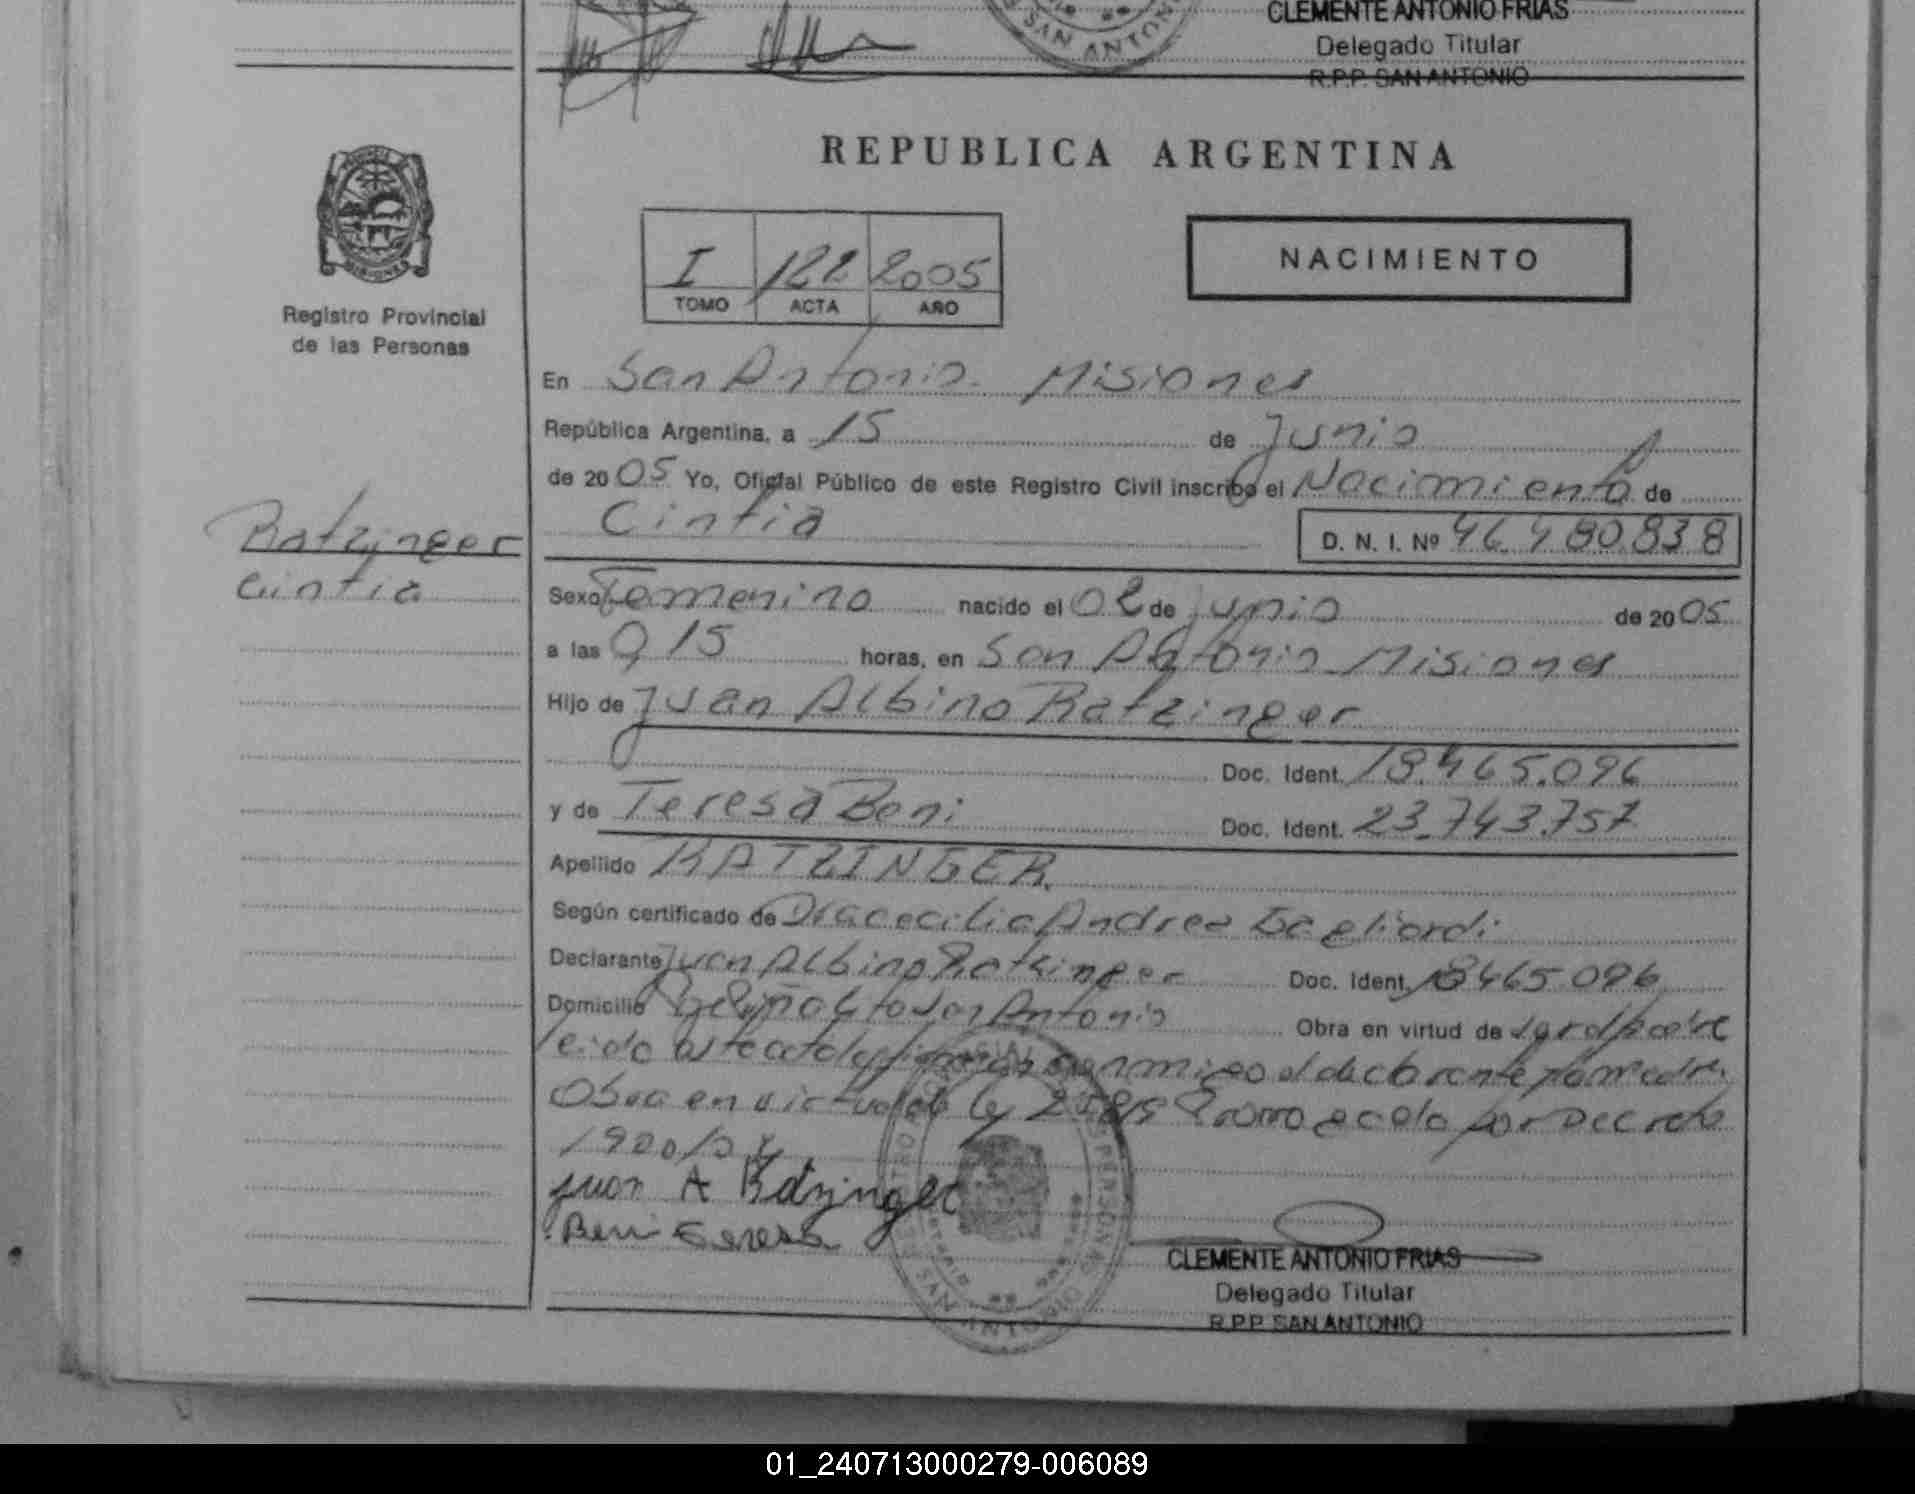 CLEMENTE ANTONIO FRIAS
Delegado Titular
R.P.P. SAN ANTONIO
SAN ANTONIO
REPUBLICA ARGENTINA
PROVINCIA DE
MISIONES
Registro Provincial
de las Personas
I 122 2005
TOMO ACTA AÑO
NACIMIENTO
En San Antonio - Misiones
República Argentina, a 15 de Junio
de 2005 Yo, Oficial Público de este Registro Civil inscribo el Nacimiento de
Cintia D. N. I. Nº 46.480.838
Ratzinger
Cintia
Sexo Femenino nacido el 02 de junio de 2005
a las 0,15 horas, en San Antonio Misiones
Hijo de Juan Albino Ratzinger
Doc. Ident. 18.465.096
y de Teresa Beni Doc. Ident. 23.743.757
Apellido RATZINGER.
Según certificado de Dra Cecilia Andrea Gagliardi
Declarante Juan Albino Ratzinger Doc. Ident. 18465.096
Domicilio San Antonio Obra en virtud de
leido el declarante
Obra en virtud de ley por Decreto
1900/04
juan A Ratzinger
Beni Teresa
SAN ANTONIO
CLEMENTE ANTONIO FRIAS
Delegado Titular
R.P.P. SAN ANTONIO
01_240713000279-006089